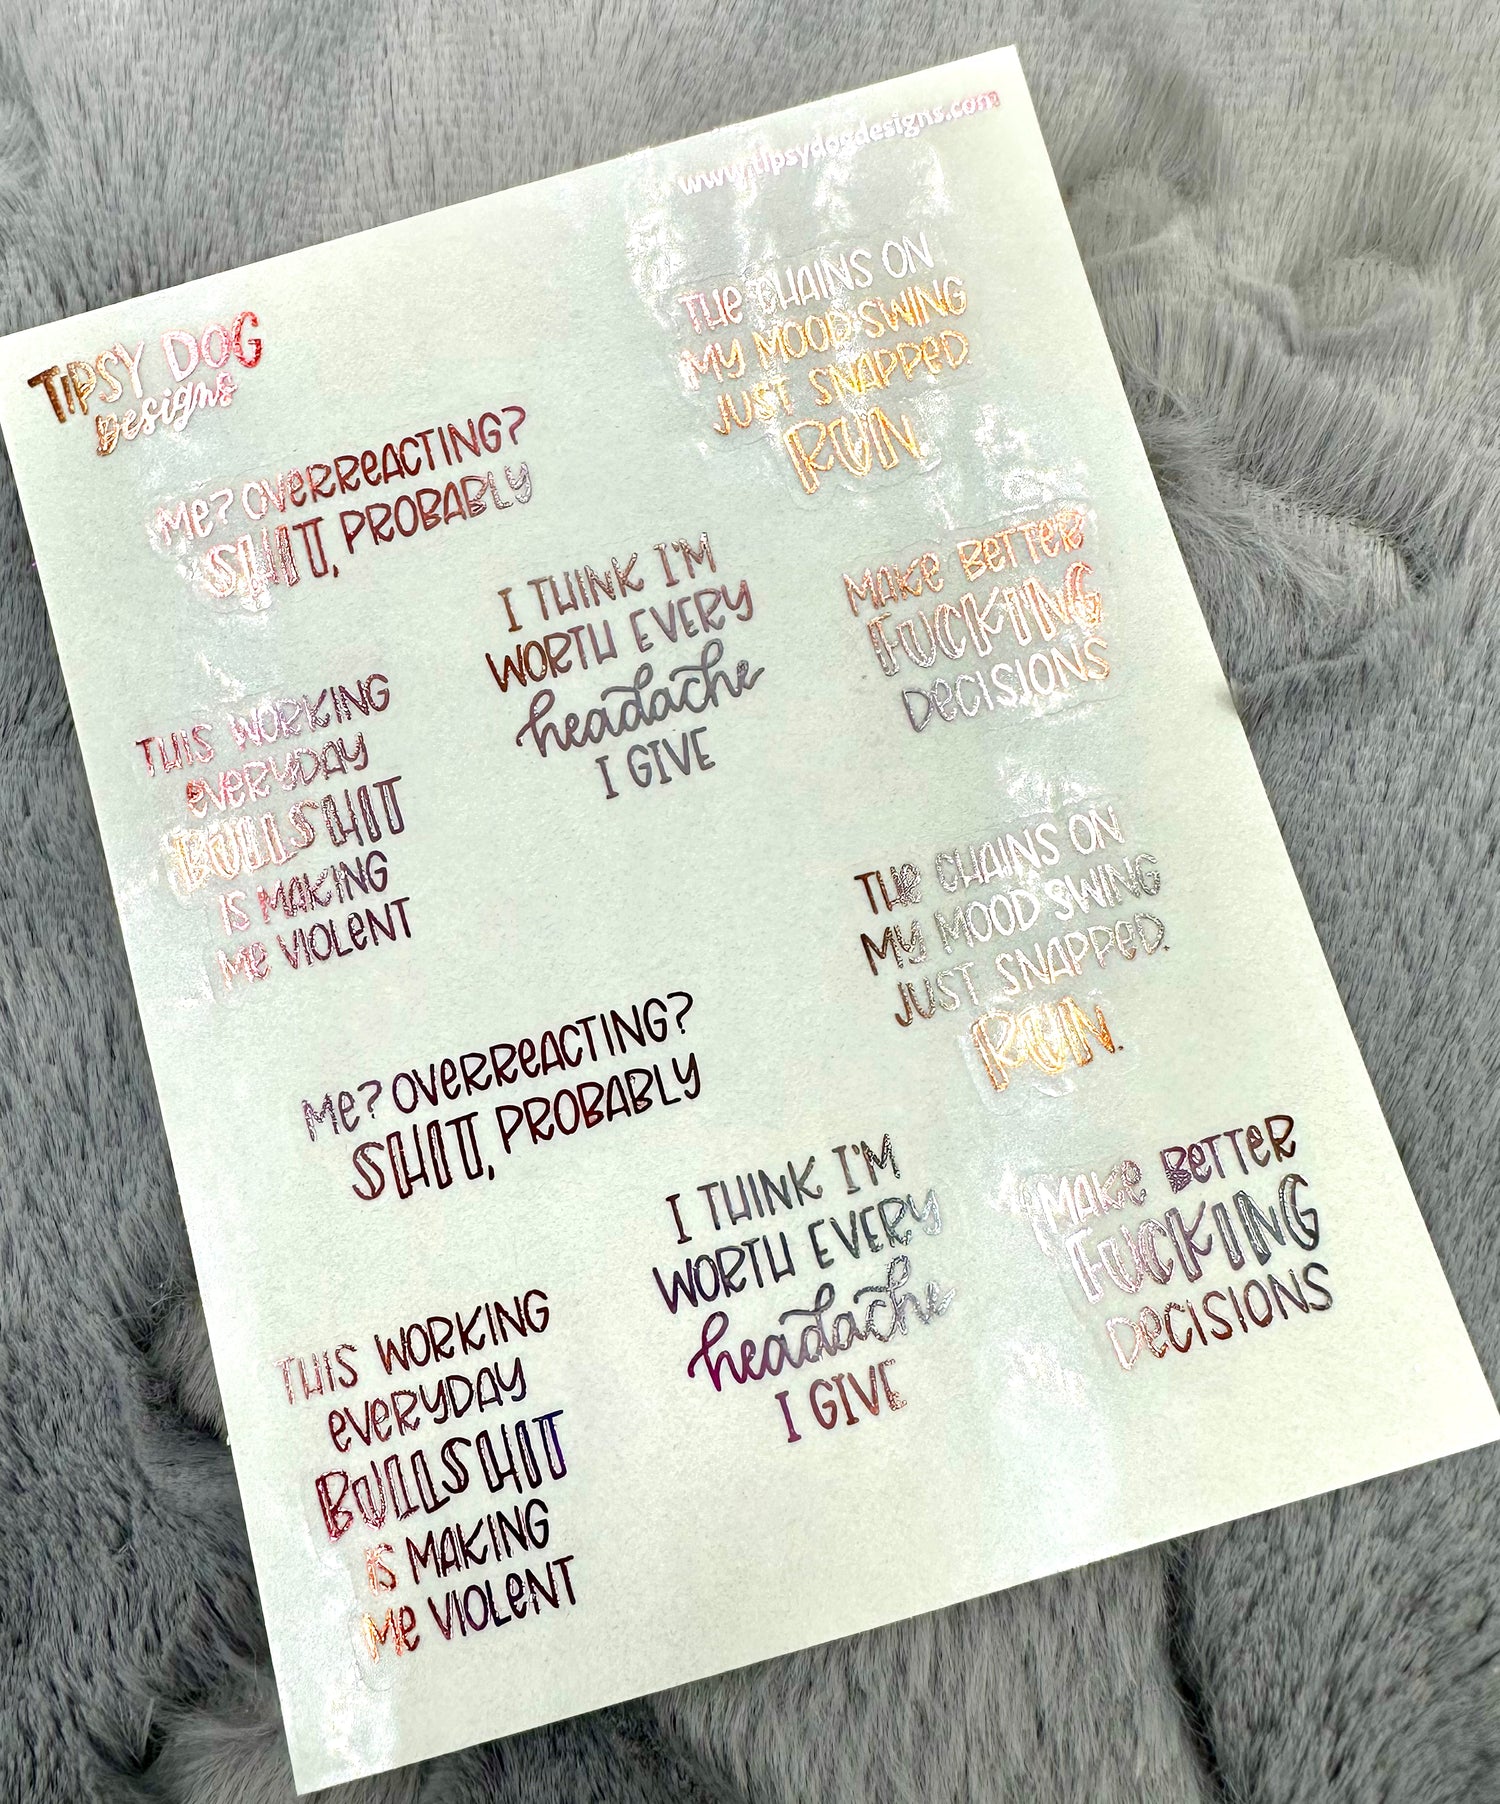 www.tipsydogdesigns.com
TIPSY DOG
Designs
Me? OVERREACTING?
SHIT, PROBABLY
THE CHAINS ON
MY MOOD SWING
JUST SNAPPED.
RUN.
I THINK I'M
WORTH EVERY
headache
I GIVE
MAKE BETTER
FUCKING
DECISIONS
THIS WORKING
EVERYDAY
BULLSHIT
IS MAKING
ME VIOLENT
Me? OVERREACTING?
SHIT, PROBABLY
THE CHAINS ON
MY MOOD SWING
JUST SNAPPED.
RUN.
I THINK I'M
WORTH EVERY
headache
I GIVE
MAKE BETTER
FUCKING
DECISIONS
THIS WORKING
EVERYDAY
BULLSHIT
IS MAKING
ME VIOLENT